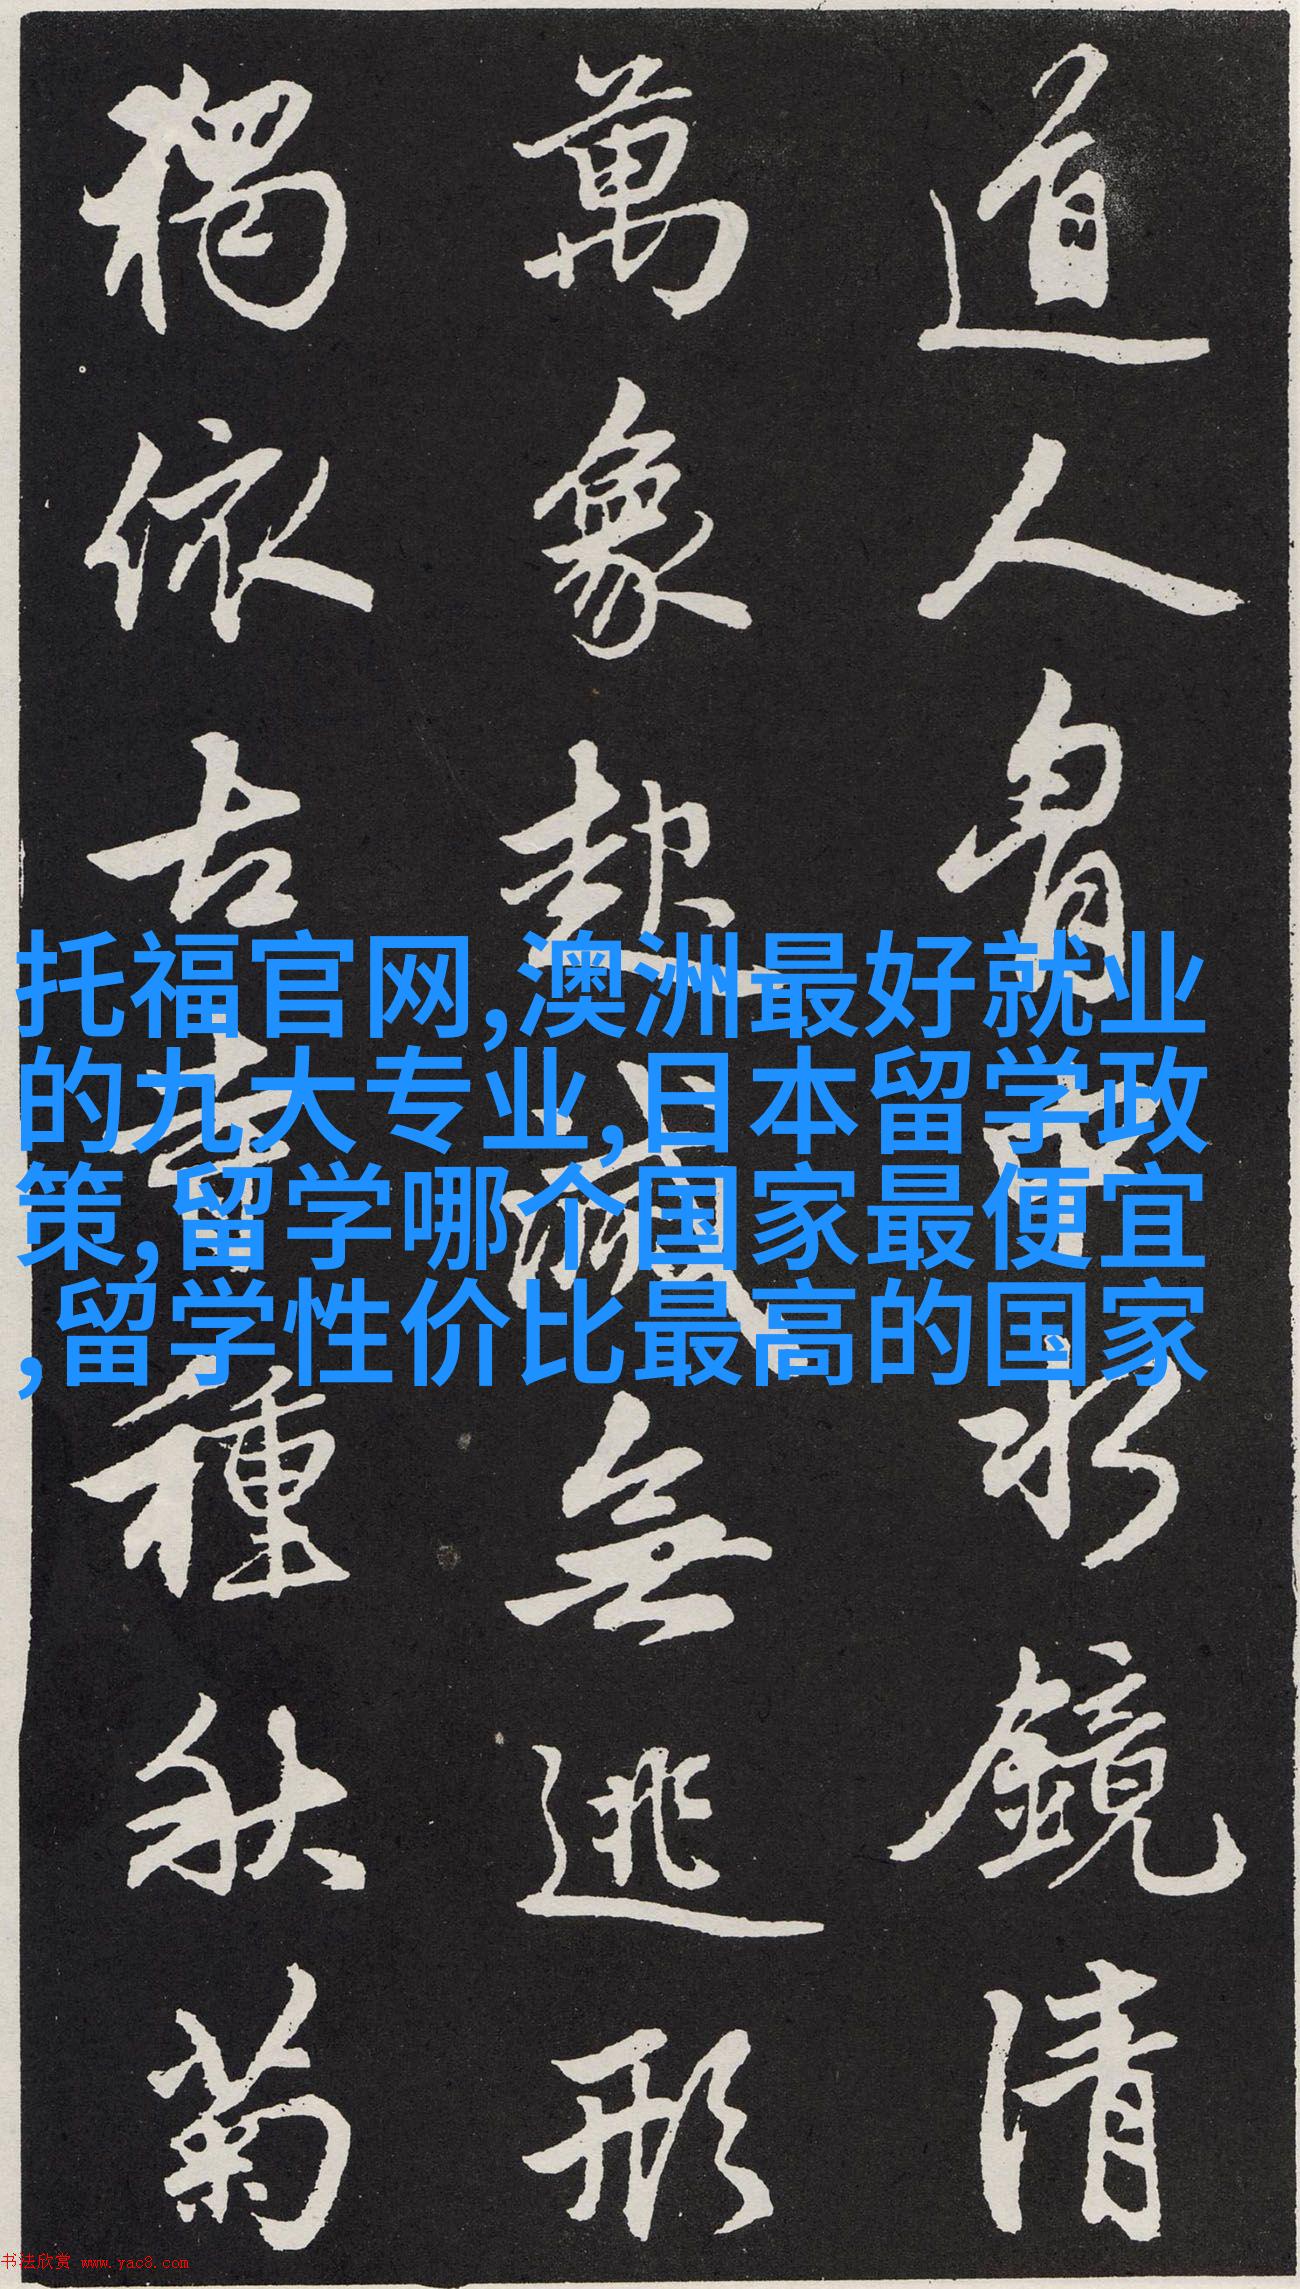 道人胷中水鏡清
萬象起滅無逃形
獨依古寺種秋菊
托福官网,澳洲最好就业
的九大专业,日本留学政
策,留学哪个国家最便宜
,留学性价比最高的国家
书法欣赏 www.yac8.com